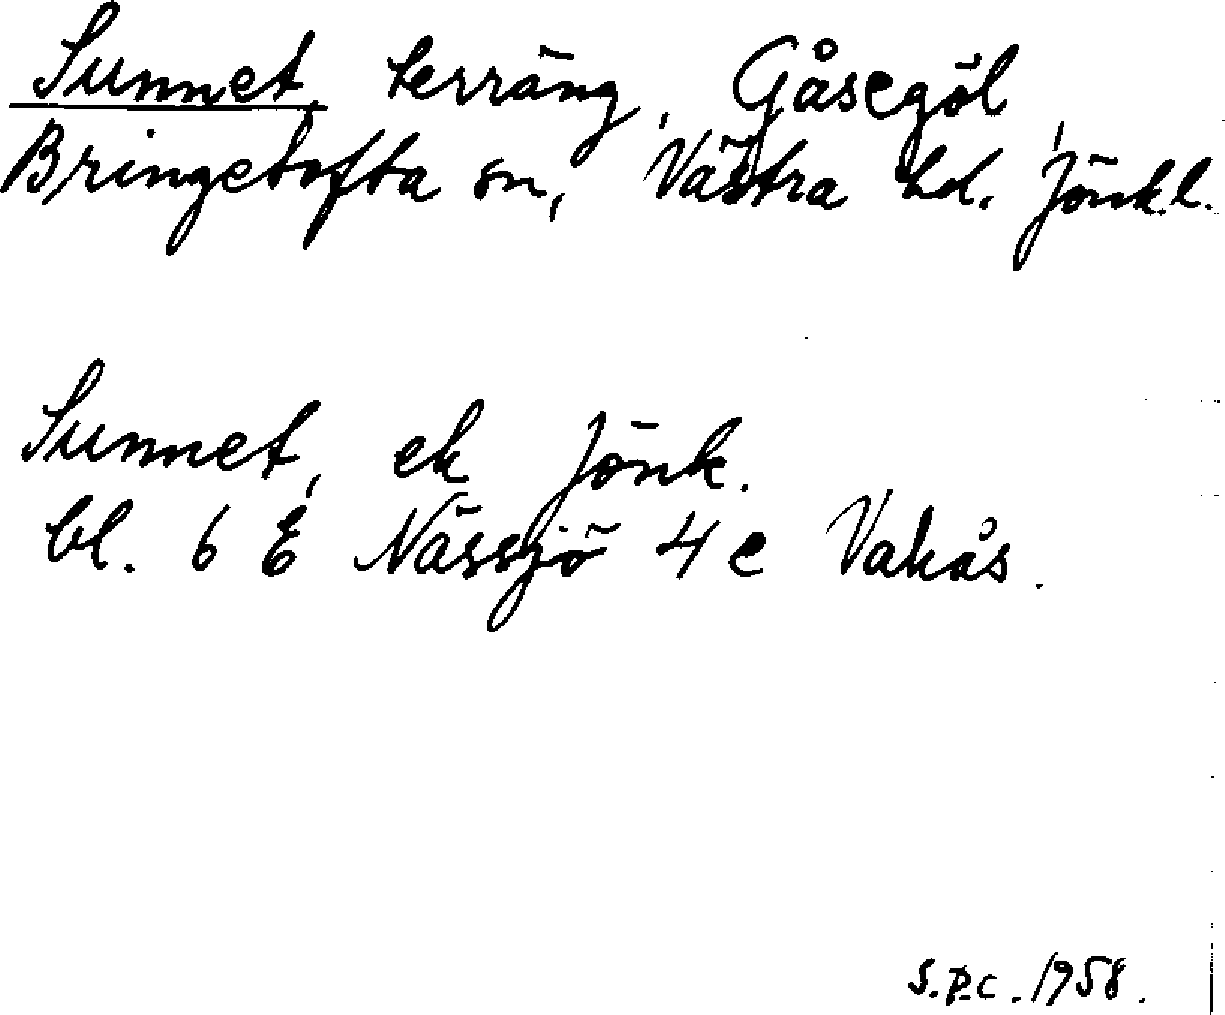 Sunnet, terräng, Gåsegöl,
Bringetofta sn, Västra hd. Jönk.l.
Sunnet, ek Jönk.
bl. 6 E Nässjö 4 e Vakås.
S.P.C. 1958.